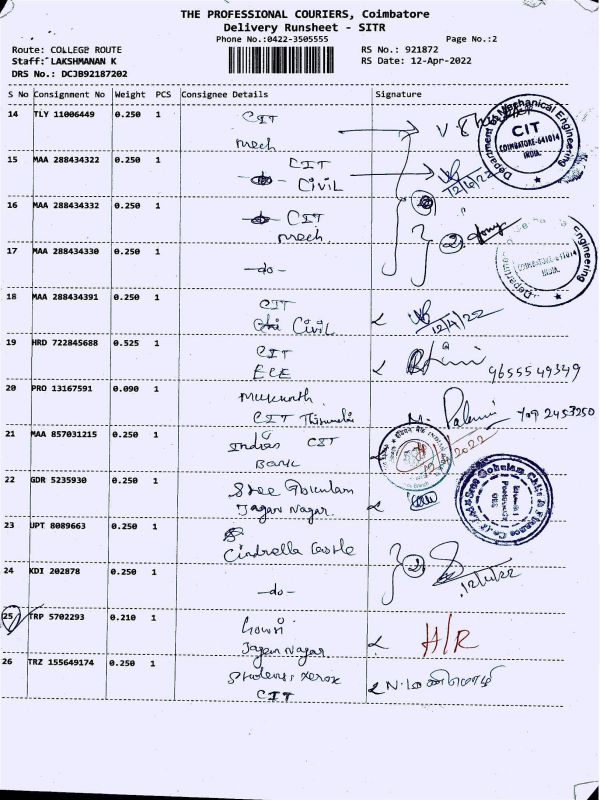 THE PROFESSIONAL COURIERS, Coimbatore
Delivery Runsheet - SITR
Phone No.:0422-3505555
Page No.:2
Route: COLLEGE ROUTE
RS No.: 921872
Staff: LAKSHMANAN K
RS Date: 12-Apr-2022
DRS No.: DCJB92187202
S No Consignment No Weight PCS Consignee Details Signature
14 TLY 11006449 0.250 1 CIT
Mech
Department of Mechanical Engineering
CIT
COIMBATORE-641014
INDIA.
15 MAA 288434322 0.250 1 CIT
-do- CIVIL
12/4/22
16 MAA 288434332 0.250 1 -do- CIT
Mech.
2
17 MAA 288434330 0.250 1
-do-
COIMBATORE-641014
INDIA.
18 MAA 288434391 0.250 1 CIT
Civil
12/4/22
19 HRD 722845688 0.525 1 CIT
ECE
9655549349
20 PRO 13167591 0.090 1
CIT
21 MAA 857031215 0.250 1 Indian CIT
Bank
22 GDR 5235930 0.250 1 Sree Gokulam
Jagan Nagar.
Sree Gokulam Chit & Finance Co.(P) Ltd
23 UPT 8089663 0.250 1
Cindrella Castle
24 KDI 202878 0.250 1
-do-
2
12/4/22
25 TRP 5702293 0.210 1 Gowri
Jagan Nagar
H/R
26 TRZ 155649174 0.250 1 Students xerox
CIT